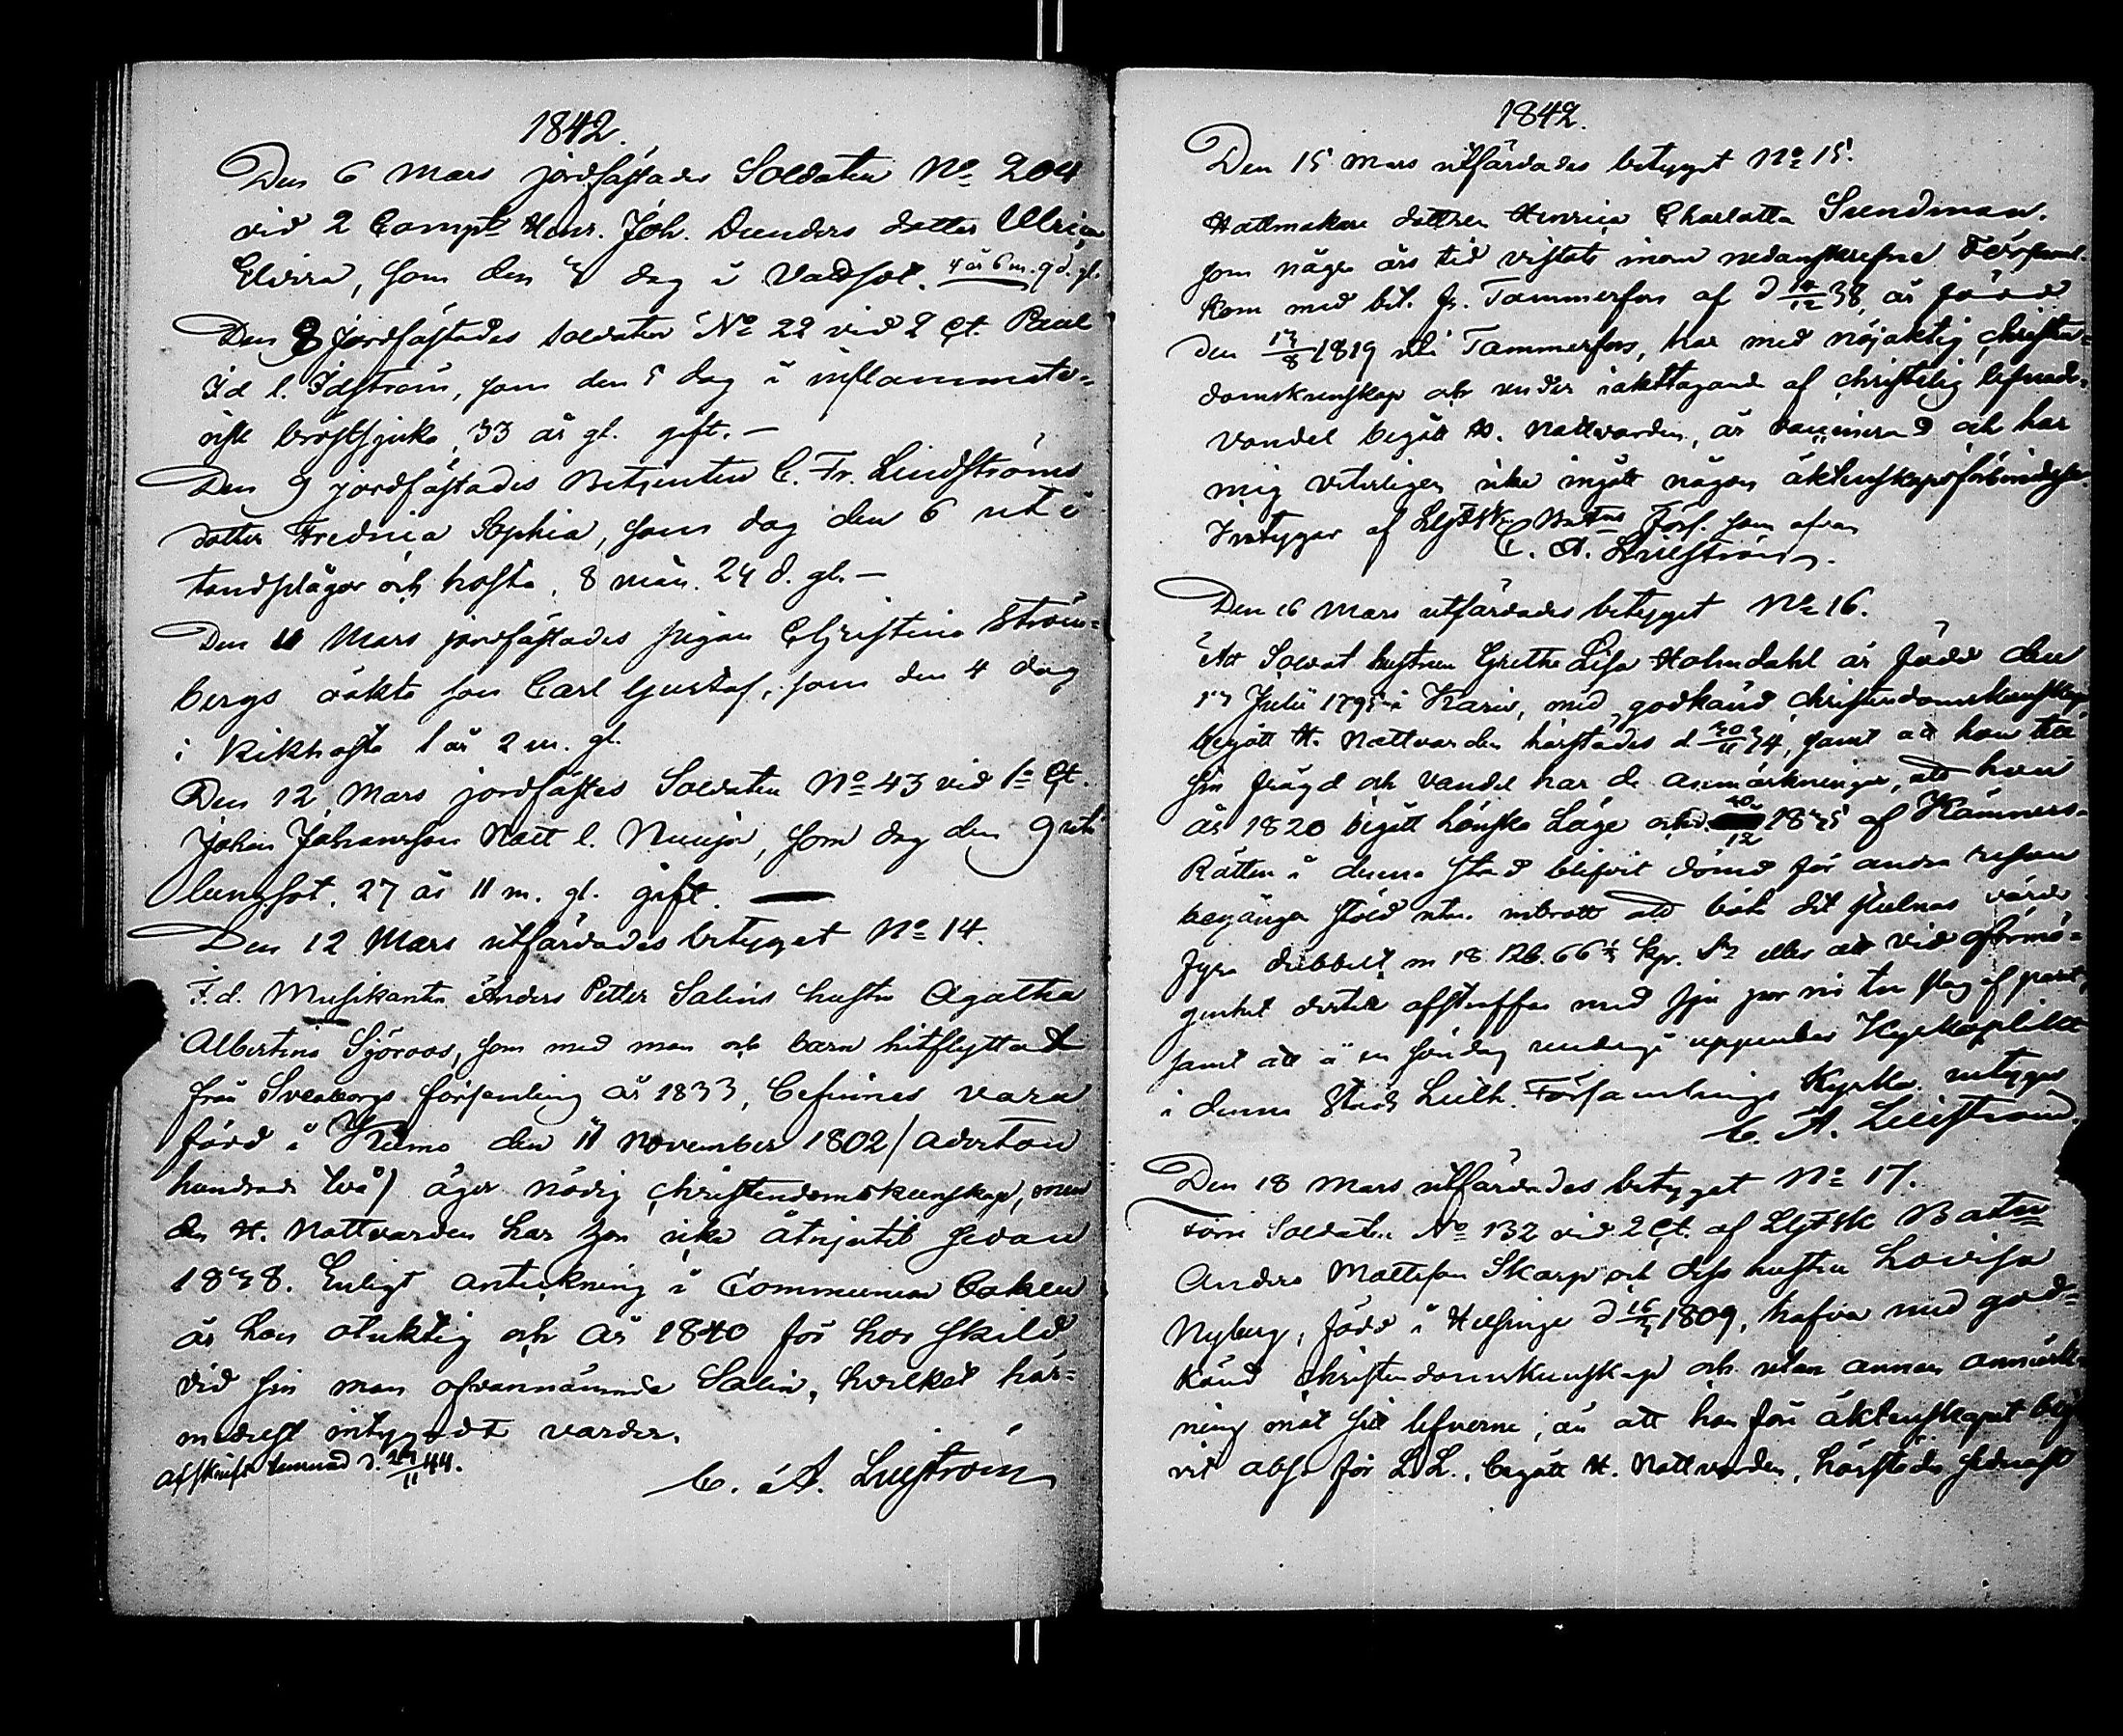 1842.
Den 6 Mars jordfästades Soldaten No 204
vid 2 Compt Henr. Joh. Dunders dotter Ulrica
Elvira, som den 3 dog i Vattsot. 4 år 6 m. 9 d. gl.
Den 8 Jordfästades soldaten No 22 vid 2 Ct. Paul
Id l. Idström, som den 5 dog i inflammato-
risk bröstsjuka, 33 år gl. gift. —
Den 9 jordfästades Betjenten C. Fr. Lindströms
dotter Fredrica Sophia, som dog den 6 uti
tandplågor och hosta, 8 mån. 24 d. gl. —
Den 11 Mars jordfästades pigan Christina Ström-
bergs oäkta son Carl Gustaf, som den 4 dog
i Kikhosta 1 år 2 m. gl.
Den 12 Mars jordfästes Soldaten No 43 vid 1a Ct.
Johan Johansson l. , som dog den 9 uti
lungsot, 27 år 11 m. gl. gift. —
Den 12 Mars utfärdades betyget No 14.
F.d. Musikanten Anders Petter Salins hustru Agatha
Albertina Sjöroos, som med man och barn hitflyttadt
från Sveaborgs församling år 1833, befinnes vara
född i Kumo den 11 November 1802 / aderton
hundrade två / äger nödig christendomskunskap, men
den H. Nattvarden har hon icke åtnjutit sedan
1838. Enligt anteckning i Communion boken
är hon otuktig och år 1840 för hor skild
vid sin man ofvannämnde Salin, hvilket här-
medelst intygadt varder.
Afskrift lemnad d. 29/11 44.
C. A. Liljeström
1842.
Den 15 Mars utfärdades betyget No 15.
Hattmakare dottren Henrica Charlotta Sundman,
som några års tid vistats inom nedanskrefne Församl.
kom med bet. fr. Tammerfors af d 14/12 38, är född
den 13/8 1819 uti Tammerfors, har med nöjaktig christen-
domskunskap och under iakttagande af christelig lefnads-
vandel begått H. Nattvarden, är vaccinerad och har
mig veterligen icke ingått någon äktenskapsförbindelse.
Intygar af Lgdsk. Battns Förs. som ofvan
C. A. Liljeström.
Den 16 Mars utfärdades betyget No 16.
Att Soldat hustrun Gretha Lisa Holmdahl är född den
17 Julii 1795 i Karis, med godkänd christendomskunskap
begått H. Nattvarden härstädes d 30/11 34, samt att hon till
sin frägd och vandel har de anmärkningar, att hon
år 1820 begått lönska Läge och d. 20/12 1835 af Kämners-
Rätten i denna stad blifvit dömd för andra resan
begången stöld utan inbrott att böta det stulnas värde
fyra dubbelt m 18 Rb. 66 2/3 kp. Sr eller att vid oförmö-
genhet dertill afstraffas med sju par ris tre slag af paret,
samt att å en söndag undergå uppenbar Kyrkoplikt
i denna Stads Luth. Församlings Kyrka intygas
C. A. Liljeström.
Den 18 Mars utfärdades betyget No 17.
Förre Soldaten No 132 vid 2 Ct. af Lgfsk Batn
Anders Mattsson Skarp och dess hustru Lovisa
Nyberg, född i Helsinge d 16/3 1809, hafva med god-
känd christendomskunskap och utan annan anmärk-
ning mot sitt lefverne, än att han före äktenskapet blif
vit abs. för L. L., begått H. Nattvarden, härstädes sednast